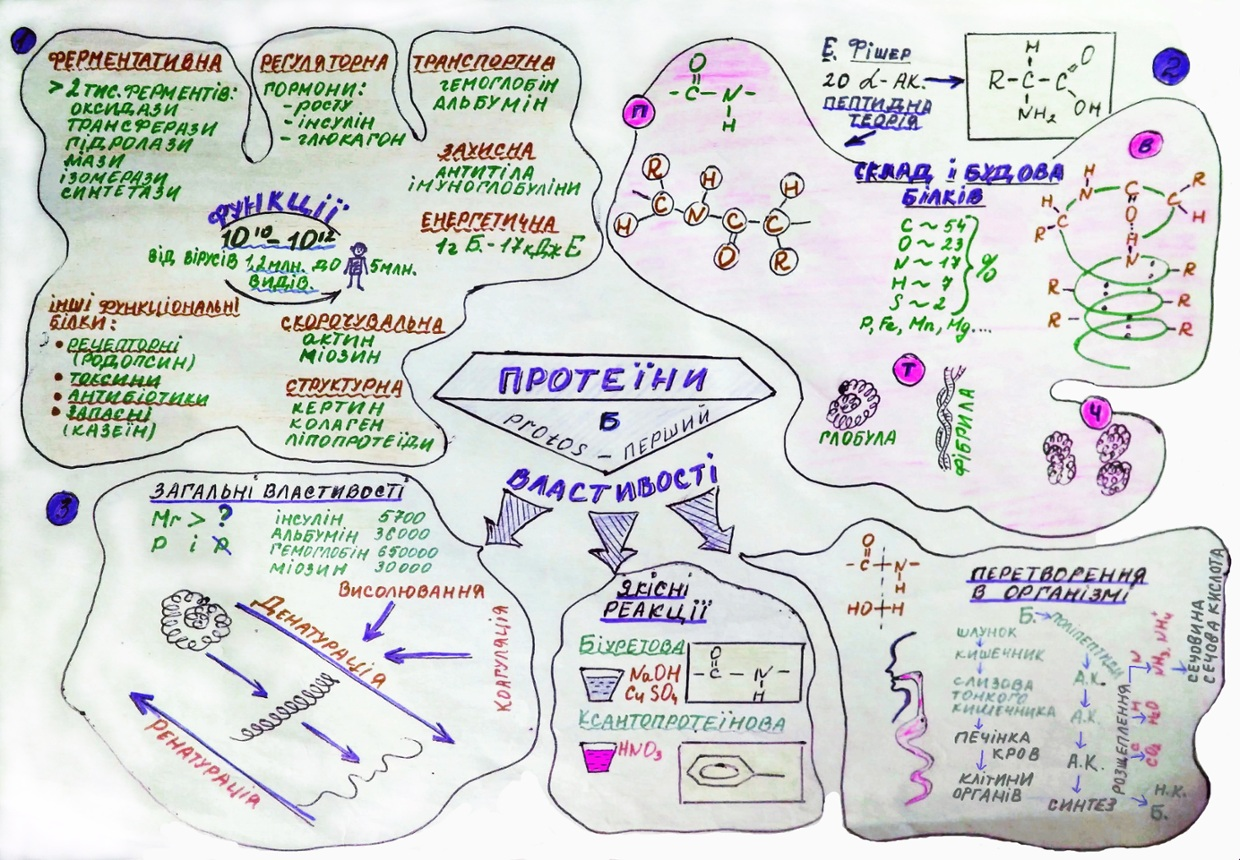 1
ФЕРМЕНТАТИВНА
> 2 ТИС. ФЕРМЕНТІВ:
ОКСИДАЗИ
ТРАНСФЕРАЗИ
ГІДРОЛАЗИ
ЛІАЗИ
ІЗОМЕРАЗИ
СИНТЕТАЗИ
РЕГУЛЯТОРНА
ГОРМОНИ:
- РОСТУ
- ІНСУЛІН
- ГЛЮКАГОН
ТРАНСПОРТНА
ГЕМОГЛОБІН
АЛЬБУМІН
ЗАХИСНА
АНТИТІЛА
ІМУНОГЛОБУЛІНИ
ЕНЕРГЕТИЧНА
1г Б - 17 кДж Е
ФУНКЦІЇ
10¹⁰ - 10¹²
ВІД ВІРУСІВ 1,2 МЛН. ДО 5 МЛН.
ВИДІВ.
ІНШІ ФУНКЦІОНАЛЬНІ
БІЛКИ:
• РЕЦЕПТОРНІ
(РОДОПСИН)
• ТОКСИНИ
• АНТИБІОТИКИ
• ЗАПАСНІ
(КАЗЕЇН)
СКОРОЧУВАЛЬНА
АКТИН
МІОЗИН
СТРУКТУРНА
КЕРТИН
КОЛАГЕН
ЛІПОПРОТЕЇДИ
ПРОТЕЇНИ
Б
protos - ПЕРШИЙ
ВЛАСТИВОСТІ
2
Е. ФІШЕР
20 α-АК.
ПЕПТИДНА
ТЕОРІЯ
H
R-C-C
O
OH
NH₂
П
O
-C-N-
H
R H H
C N C C
H O R
СКЛАД І БУДОВА
БІЛКІВ
C ~ 54
O ~ 23
N ~ 17
H ~ 7
S ~ 2
%
P, Fe, Mn, Mg....
В
H
N
C
R
H
C
O
C
H
R
H
N
R
R
R
R
Т
ГЛОБУЛА
ФІБРИЛА
Ч
3
ЗАГАЛЬНІ ВЛАСТИВОСТІ
Mr > ?
Р і Р
ІНСУЛІН 5700
АЛЬБУМІН 36000
ГЕМОГЛОБІН 650000
МІОЗИН 30000
ВИСОЛЮВАННЯ
ДЕНАТУРАЦІЯ
КОАГУЛЯЦІЯ
РЕНАТУРАЦІЯ
ЯКІСНІ
РЕАКЦІЇ
БІУРЕТОВА
NaOH
CuSO₄
O
-C-N-
H
КСАНТОПРОТЕЇНОВА
HNO₃
O
-C-N-
H
HO H
ПЕРЕТВОРЕННЯ
В ОРГАНІЗМІ
Б. ПОЛІПЕПТИДИ
ШЛУНОК
КИШЕЧНИК
А.К.
СЛИЗОВА
ТОНКОГО
КИШЕЧНИКА
А.К.
ПЕЧІНКА
КРОВ
А.К.
КЛІТИНИ
ОРГАНІВ
СИНТЕЗ
Н.К.
Б.
РОЗЩЕПЛЕННЯ
N
NH₃, NH₄⁺
H
H₂O
C
CO₂
СЕЧОВИНА
СЕЧОВА КИСЛОТА